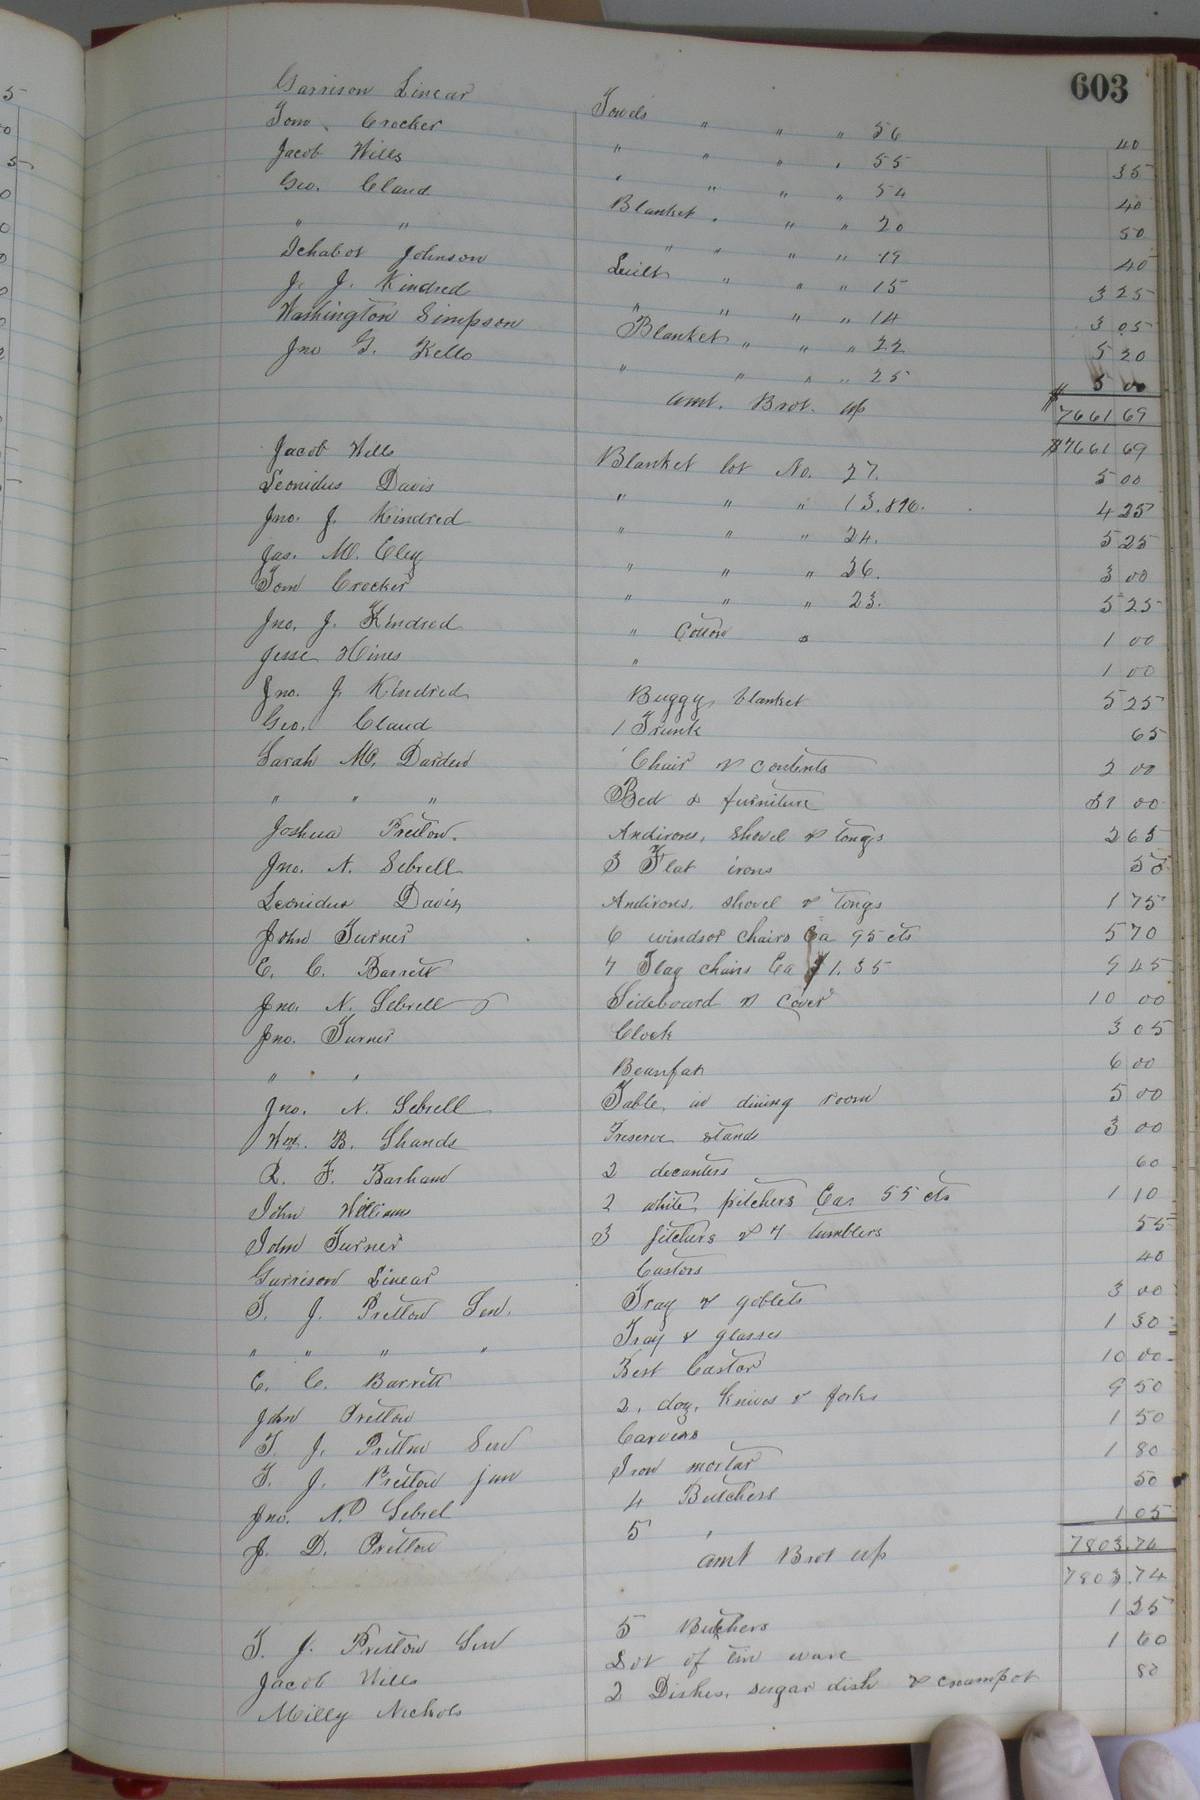 603
Garrison Linear Towels " " " 56 40
Tom Crocker " " " " 55 35
Jacob Wills " " " " 54 40
Geo. Claud Blanket " " " 20 50
" " " " " " 19 40
Ichabot Johnson Quilt " " " 15 3 25
J. J. Kindred " " " " 14 3 05
Washington Simpson Blanket " " " 22 5 20
Jno G. Kello " " " " 25 5 00
amt. Brot. up $ 7661 69
$7661 69
Jacob Wills Blanket lot No. 27. 5 00
Leonidus Davis " " " 13. 4 25
Jno. J. Kindred " " " 24. 5 25
Jas. M. Cley " " " 26. 3 00
Tom Crocker " " " 23. 5 25
Jno. J. Kindred " Cotton 1 00
Jesse Hines " 1 00
Jno. J. Kindred Buggy blanket 5 25
Geo. Claud 1 Trunk 65
Sarah M. Darden Chair & contents 2 00
" " " Bed & furniture 31 00
Joshua Pretlow. Andirons, shovel & tongs 2 65
Jno. N. Sebrell 3 Flat irons 50
Leonidus Davis Andirons, shovel & tongs 1 75
John Turner 6 windsor chairs Ea 95 cts 5 70
E. C. Barrett 7 Flag chairs Ea $1.35 9 45
Jno. N. Sebrell Sideboard & cover 10 00
Jno. Turner Clock 3 05
" " Beaufat 6 00
Jno. N. Sebrell Table in dining room 5 00
Wm. B. Shands Preserve stands 3 00
R. F. Barham 2 decanters 60
John Williams 2 white pitchers Ea. 55 cts 1 10
John Turner 3 pitchers & 7 tumblers 55
Garrison Linear Castors 40
T. J. Pretlow Sen. Tray & goblets 3 00
" " " " Tray & glasses 1 30
E. C. Barrett Best Castor 10 00
John Pretlow 2, doz. Knives & forks 9 50
T. J. Pretlow Sen Carvers 1 50
T. J. Pretlow jun Iron mortar 1 80
Jno. N. Sebrel 4 Butchers 50
J. D. Pretlow 5 " 1 05
amt Brot up 7803.74
7803.74
T. J. Pretlow Sen 5 Butchers 1 25
Jacob Wills Lot of tin ware 1 60
Milly Nichols 2 Dishes, sugar dish & creampot 80